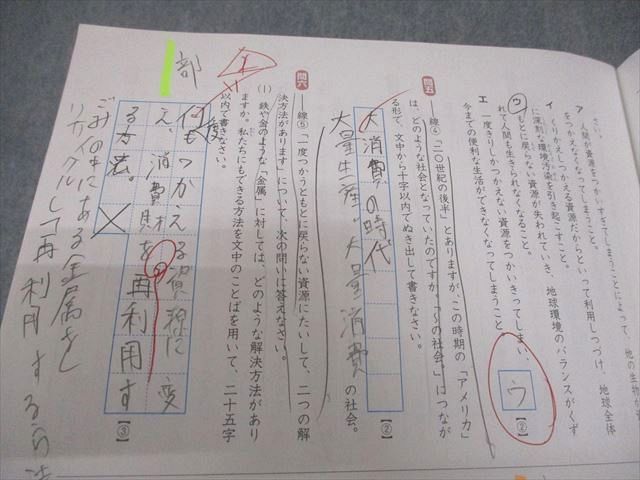 さい。
ア 人間が資源をつかいすぎてしまうことによって、他の生物が
をつかえなくなってしまうこと。
イ くりかえしつかえる資源だからといって利用しつづけ、地球全体
に深刻な環境汚染を引き起こすこと。
ウ もとに戻らない資源が失われていき、地球環境のバランスがくず
れて人間も生きられなくなること。
エ 一度きりしかつかえない資源をつかいきってしまい、
今までの便利な生活ができなくなってしまうこと。
ウ
【②】
問五 ――線④「二〇世紀の後半」とありますが、この時期の「アメリカ」
は、どのような社会となっていたのですか。「の社会」につなが
る形で、文中から十字以内でぬき出して書きなさい。
大消費の時代
の社会。
【②】
大量生産・大量消費
問六 ――線⑤「一度つかうともとに戻らない資源にたいして、二つの解
決方法があります」について、次の問いに答えなさい。
(1) 鉄や金のような「金属」に対しては、どのような解決方法があり
ますか。私たちにもできる方法を文中のことばを用いて、二十五字
以内で書きなさい。
何度もつかえる資源に変
え、消費財を再利用す
る方法。
【③】
部
ごみの中にある金属を
リサイクルして再利用する方法